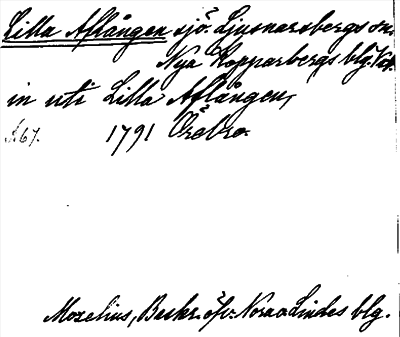 Lilla Aflången sjö. Ljusnarsbergs sn.
Nya Kopparbergs blg. Väst.
in uti Lilla Aflången,
s. 67. 1791 Örebro.
Mozelius, Beskr. öfv. Nora o. Lindes blg.